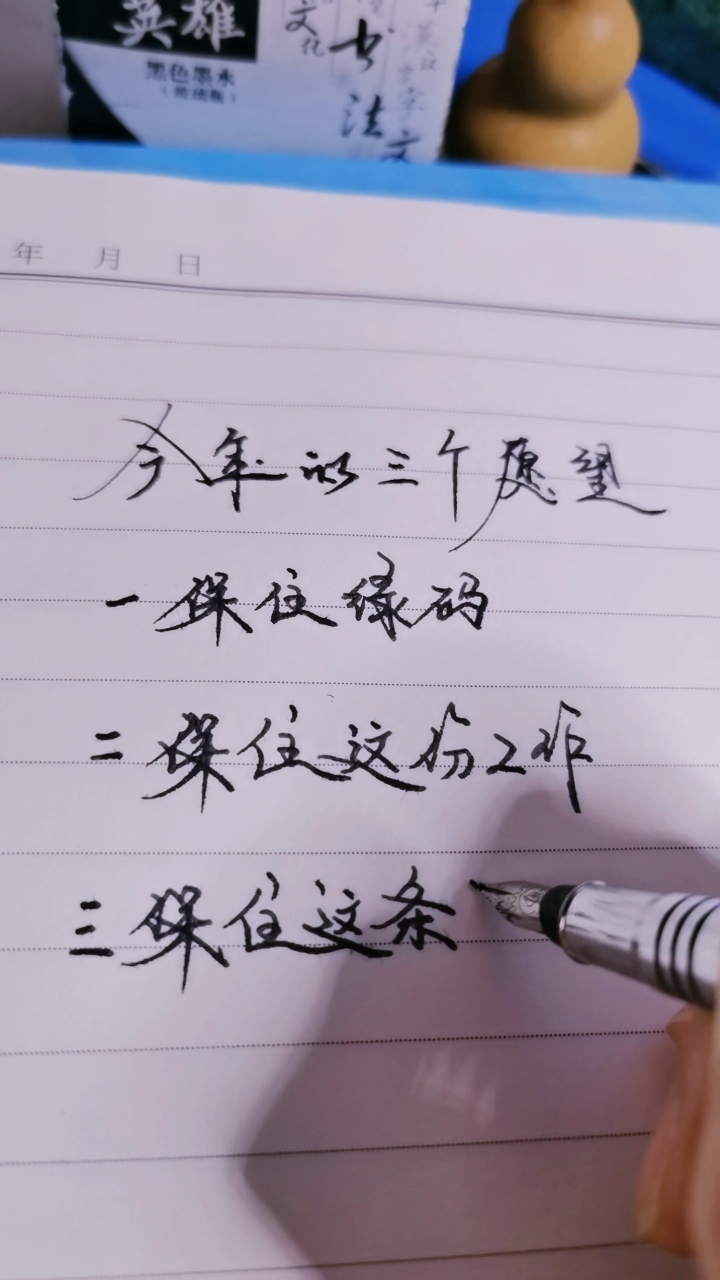 英雄
黑色墨水
文化
书法
年 月 日
今年的三个愿望
一保住绿码
二保住这份工作
三保住这条